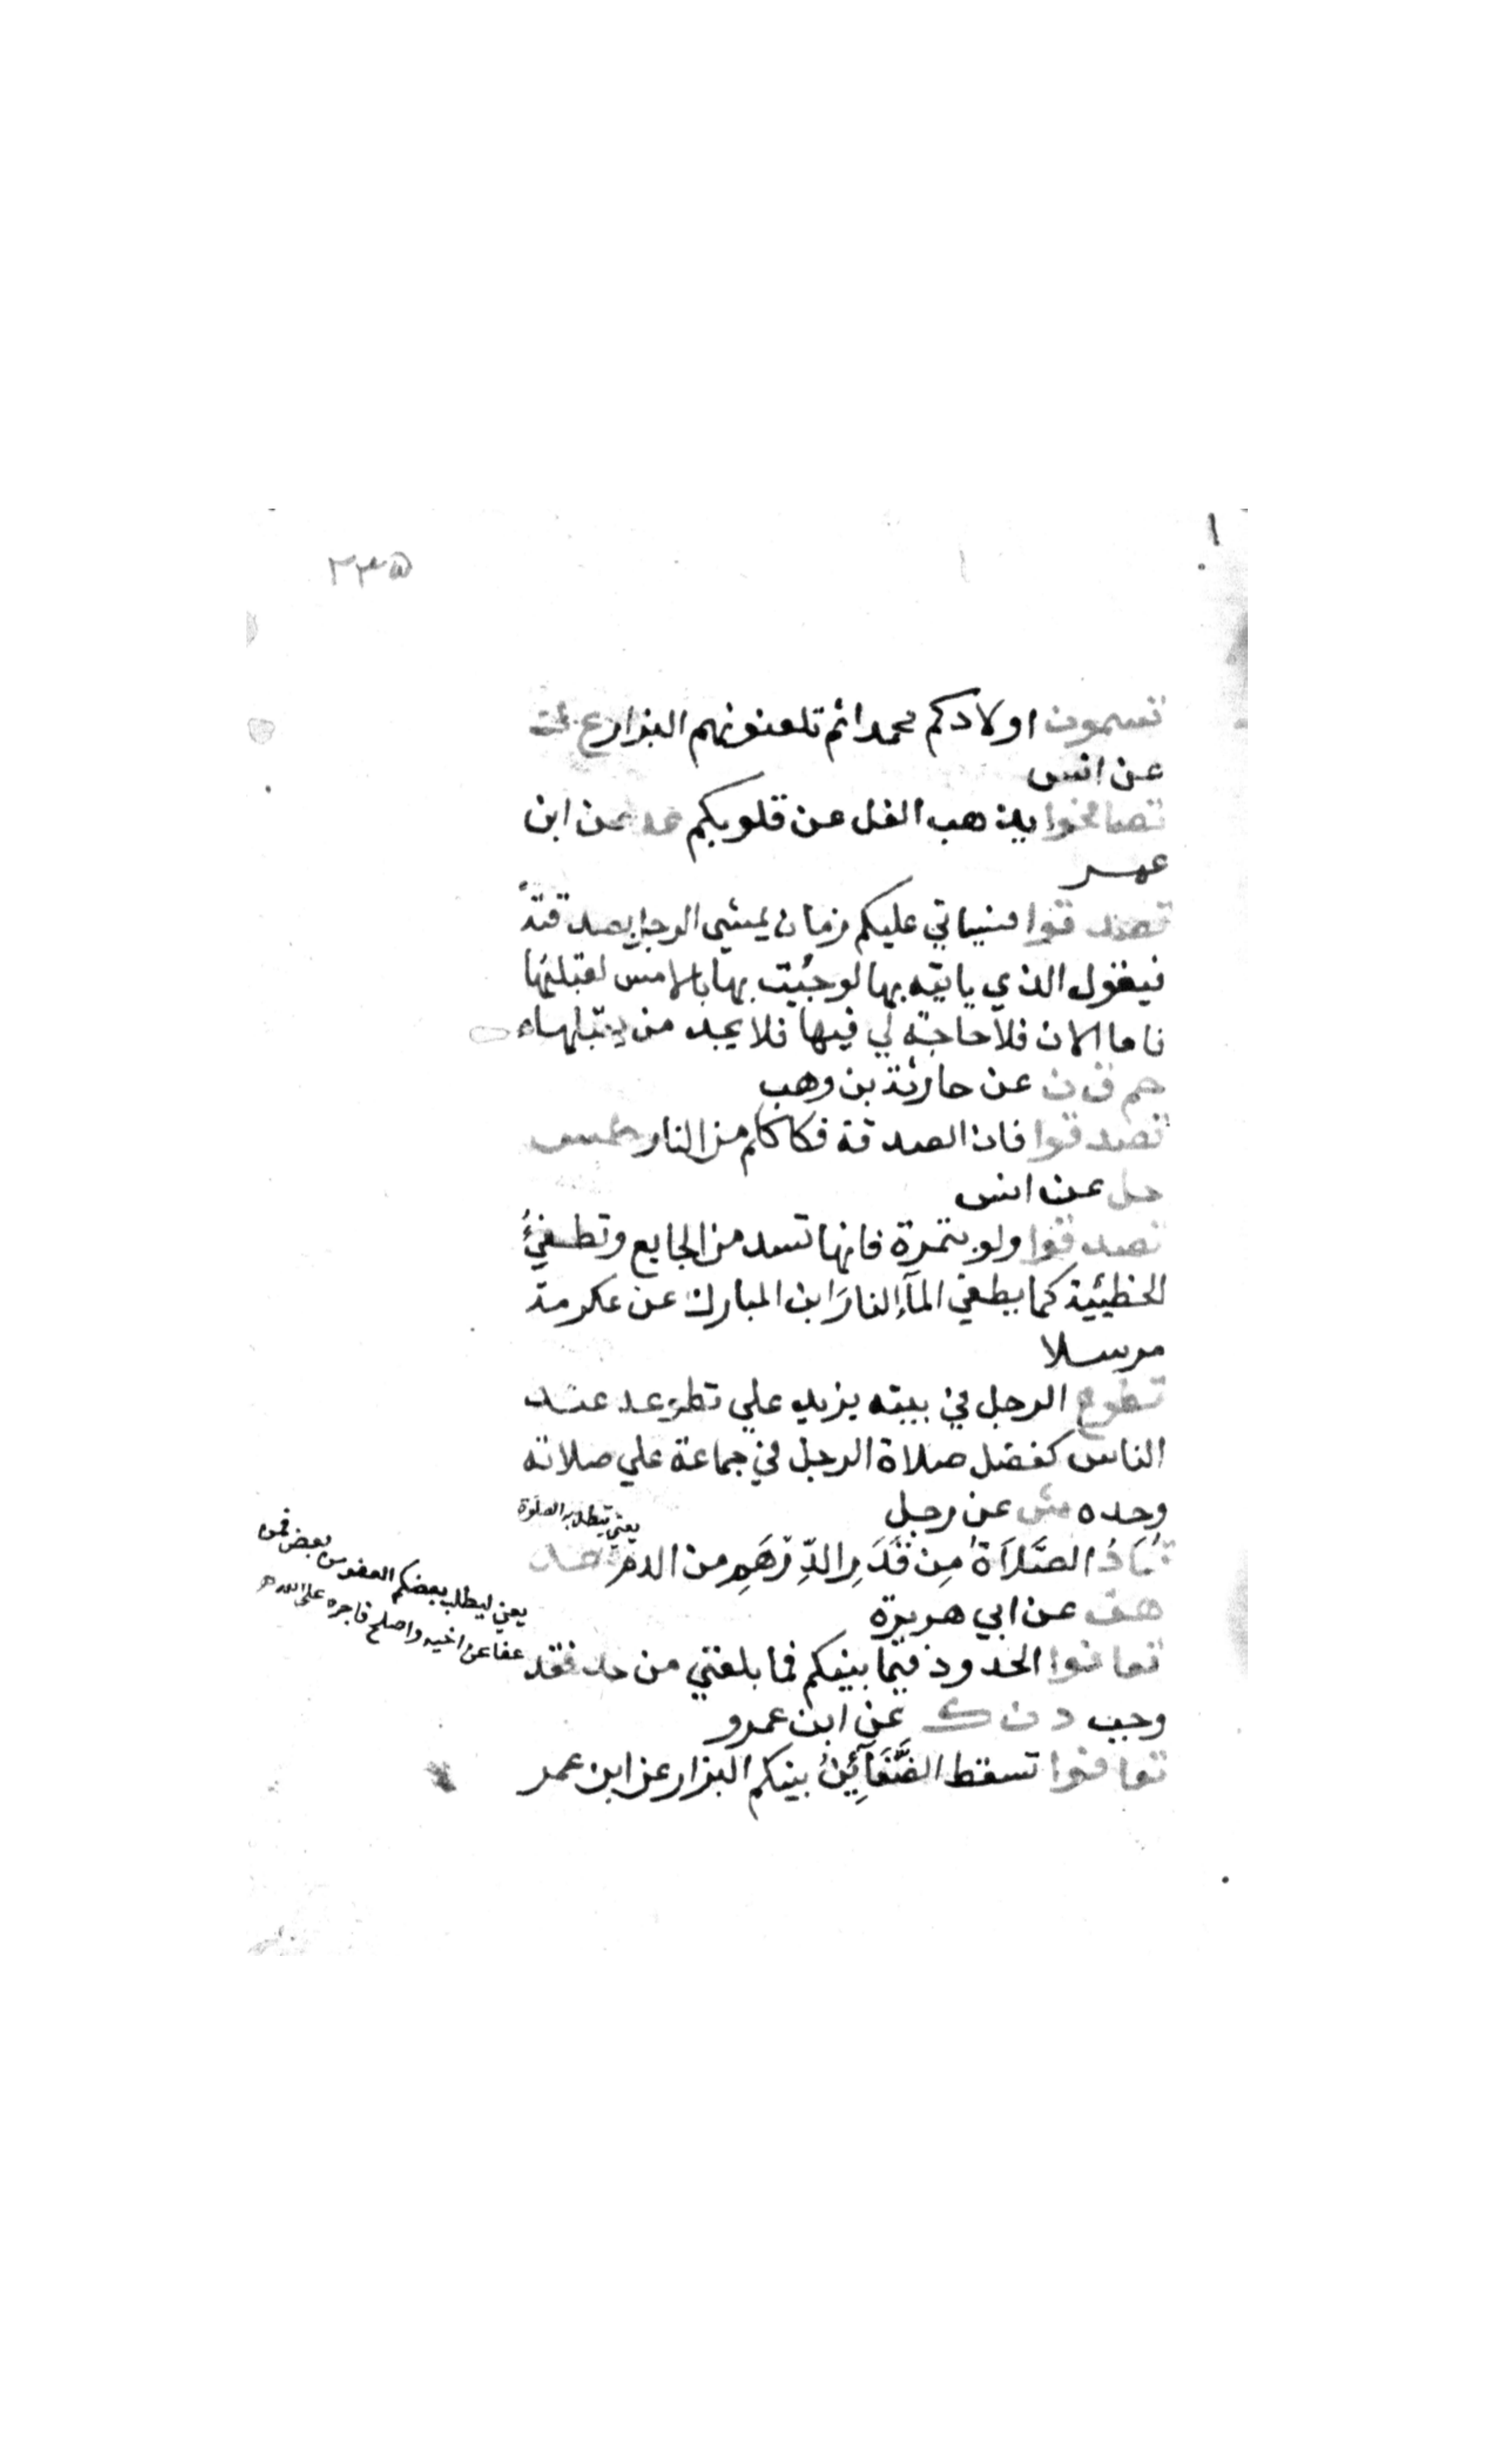 ٢٣٥
تسمون اولادكم محمدا ثم تلعنونهم البزار ع ك
عن انس
تصافحوا يذهب الغل عن قلوبكم عد عن ابن
عمر
تصدقوا فسياتي عليكم زمان يمشي الرجل بصدقته
فيقول الذي ياتيه بها لو جئت بها بالامس لقبلتها
فاما الان فلا حاجة لي فيها فلا يجد من يقبلها
حم ق ن عن حارثة بن وهب
تصدقوا فان الصدقة فكاككم من النار طس
حل عن انس
تصدقوا ولو بتمرة فانها تسد من الجايع وتطفئُ
الخطيئية كما يطفي المآء النارَ ابن المبارك عن عكرمة
مرسلا
تطوع الرجل في بيته يزيد علي تطوعه عند
الناس كفضل صلاة الرجل في جماعة علي صلاته
وحده ش عن رجل
يعني تبطل به الصلوة
تُعَادُ الصَّلَاَةُ مِن قَدَرِ الدِّرْهَمِ من الدم عد
هق عن ابي هريرة
تعافوا الحدود فيما بينكم فما بلغني من حد فقد
وجب د ن ك عن ابن عمرو
تعافوا تسقط الضَّغَآئِنُ بينكم البزار عن ابن عمر
يعني ليطلب بعضكم العفو من بعض فمن
عفا عن اخيه واصلح فاجره علي الله